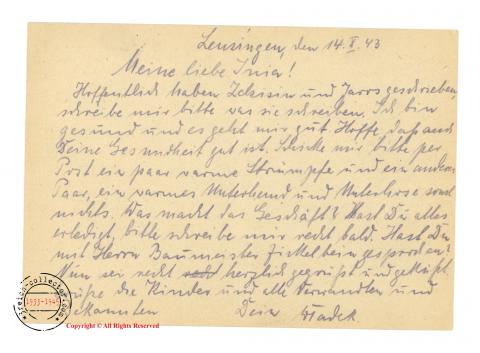 Lensingen, den 14. X. 43
Meine liebe Inia!
Hoffentlich haben und geschrieben,
schreibe mir bitte was sie schreiben. Ich bin
gesund und es geht mir gut. Hoffe, daß auch
Deine Gesundheit gut ist. Schicke mir bitte per
Post ein paar warme Strümpfe und ein anderes
Paar, ein warmes Unterhemd und Unterhose sonst
nichts. Was macht das Geschäft? Hast Du alles
erledigt, bitte schreibe mir recht bald. Hast Du
mit Herrn Baumeister gesprochen?
Nun sei recht herzlich gegrüßt und geküßt.
Grüße die Kinder und alle Verwandten und
Bekannten Dein Wladek.
reich-collector.com
1933-1945
Copyright © All Rights Reserved